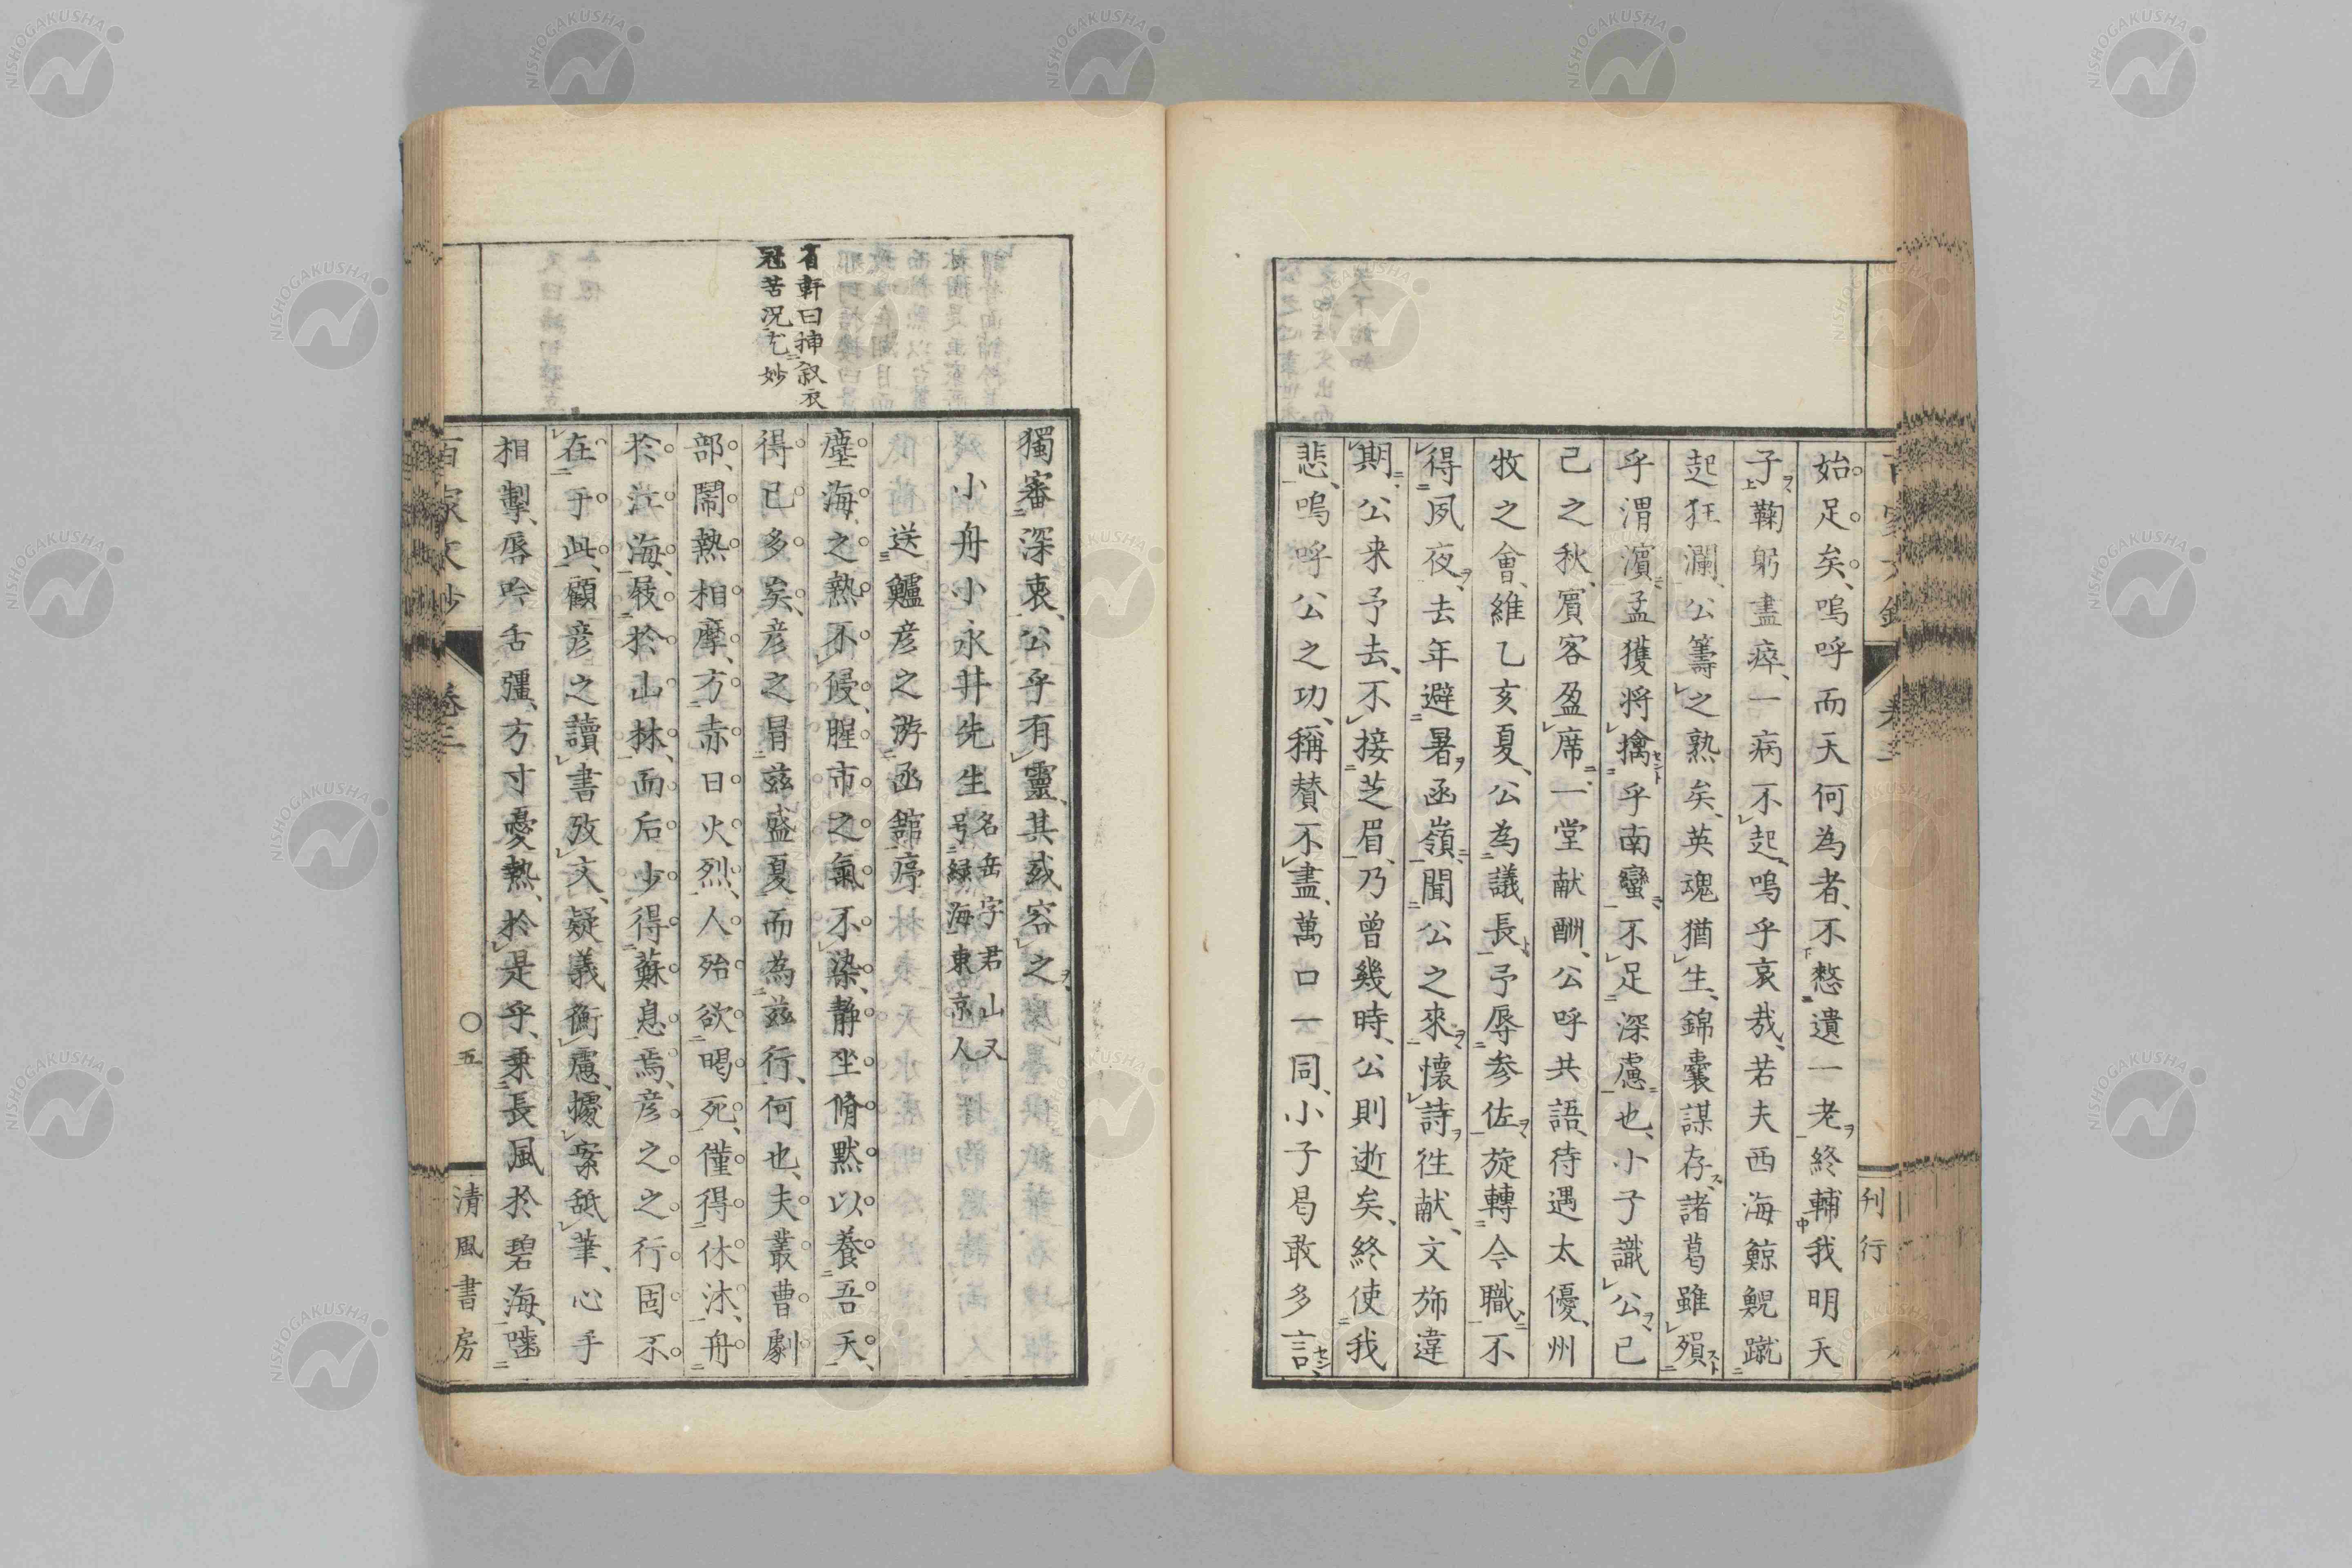 始足矣、嗚呼而天何為者、不憗遺一老終輔我明天
子鞠躬盡瘁、一病不起、嗚乎哀哉、若夫西海鯨鯢蹴
起狂瀾、公籌之熟矣、英魂猶生、錦囊謀存、諸葛雖殞
乎渭濵、孟獲将擒乎南蠻、不足深慮也、小子識公、已
己之秋、賔客盈席、一堂献酬、公呼共語、待遇太優、州
牧之會、維乙亥夏、公為議長、予辱参佐、旋轉令職、不
得夙夜、去年避暑函嶺、聞公之來、懷詩徃献、文斾違
期、公来予去、不接芝眉、乃曽幾時、公則逝矣、終使我
悲、嗚呼公之功、稱賛不盡、萬口一同、小子曷敢多言、
刊行
獨審深衷、公乎有靈、其或容之
小舟小永井先生 名岳字君山又号緑海東京人
送鱸彦之游函舘序
塵海之熱不侵、腥市之氣不染、静坐脩黙以養吾天、
得已多矣、彦之冒茲盛夏而為茲行、何也、夫叢曹劇
部、鬧熱相摩、方赤日火烈、人殆欲暍死、僅得休沐、舟
於江海、屐於山林、而后少得蘇息焉、彦之之行固不
在于此、顧彦之讀書攷文、疑義衡慮、據案舐筆、心手
相掣、唇吟舌彊、方寸憂熱、於是乎、乗長風於碧海、噬
省軒曰挿叙衣
冠苦况尤妙
百家文鈔 巻三 〇五 清風書房